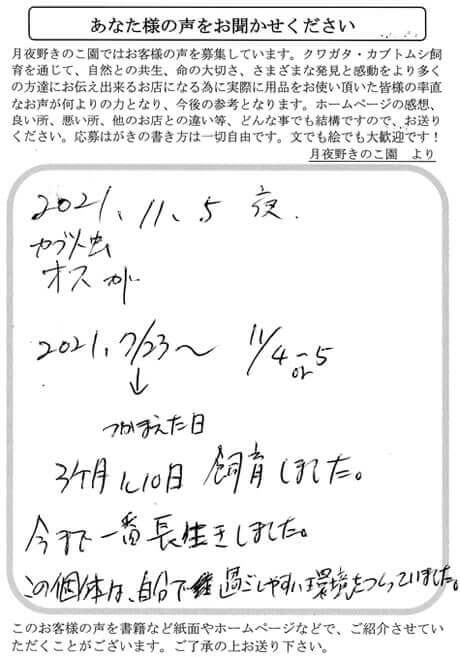 あなた様の声をお聞かせください
月夜野きのこ園ではお客様の声を募集しています。クワガタ・カブトムシ飼
育を通じて、自然との共生、命の大切さ、さまざまな発見と感動をより多く
の方達にお伝え出来るお店になる為に実際に用品をお使い頂いた皆様の率直
なお声が何よりの力となり、今後の参考となります。ホームページの感想、
良い所、悪い所、他のお店との違い等、どんな事でも結構ですので、お送り
ください。応募はがきの書き方は一切自由です。文でも絵でも大歓迎です！
月夜野きのこ園　より
2021、11、5 夜、
カブト虫
オスが
2021、7/23〜 11/4 or 5
↓
つかまえた日
3ケ月と10日 飼育しました。
今まで一番長生きしました。
この個体は、自分で過ごしやすい環境をつくっていました。
このお客様の声を書籍など紙面やホームページなどで、ご紹介させてい
ただくことがございます。ご了承の上お送り下さい。